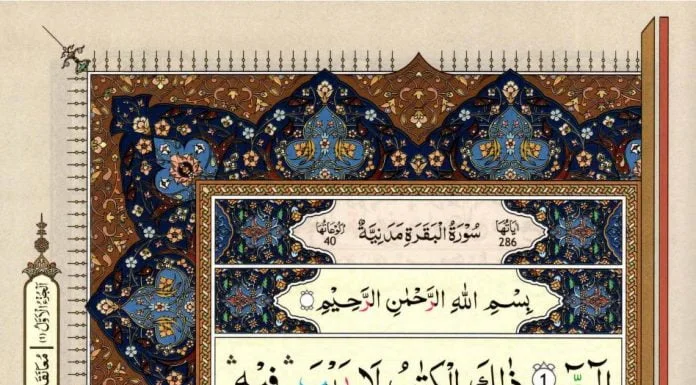 اٰیَاتُهَا 286 سُوْرَةُ الْبَقَرَةِ مَدَنِيَّةٌ رُكُوْعَاتُهَا 40
بِسْمِ اللّٰهِ الرَّحْمٰنِ الرَّحِيْمِ
الٓمّٓ ١ ذٰلِكَ الْكِتٰبُ لَا رَيْبَ فِيْهِ
اَلْجُزْءُ الْاَوَّلُ (١)